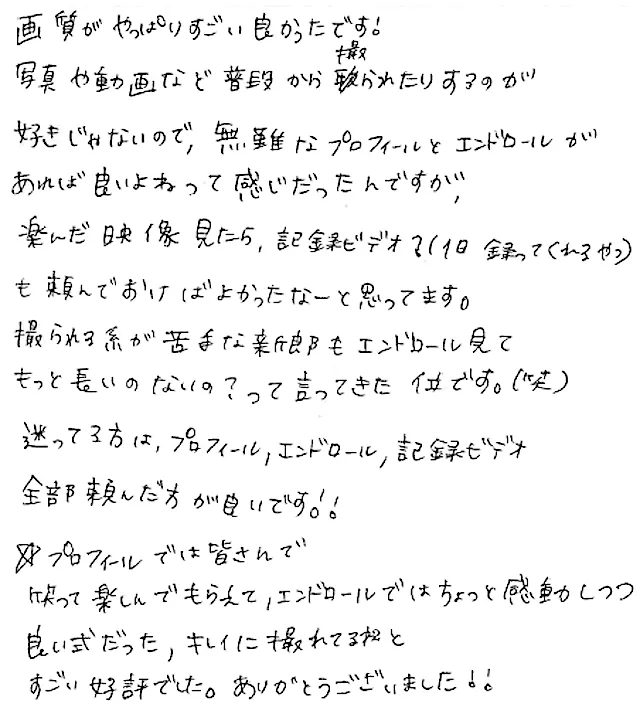 画質がやっぱりすごい良かったです!
写真や動画など普段から撮られたりするのが
好きじゃないので,無難なプロフィールとエンドロールが
あれば良いよねって感じだったんですが,
楽んだ映像見たら,記録ビデオ?(1日録ってくれるやつ)
も頼んでおけばよかったなーと思ってます。
撮られる系が苦手な新郎もエンドロール見て
もっと長いのないの?って言ってきた位です。(笑)
迷ってる方は,プロフィール,エンドロール,記録ビデオ
全部頼んだ方が良いです。!!
プロフィールでは皆さんで
笑って楽しんでもらえて,エンドロールではちょっと感動しつつ
良い式だった,キレイに撮れてるねと
すごい好評でした。ありがとうございました!!